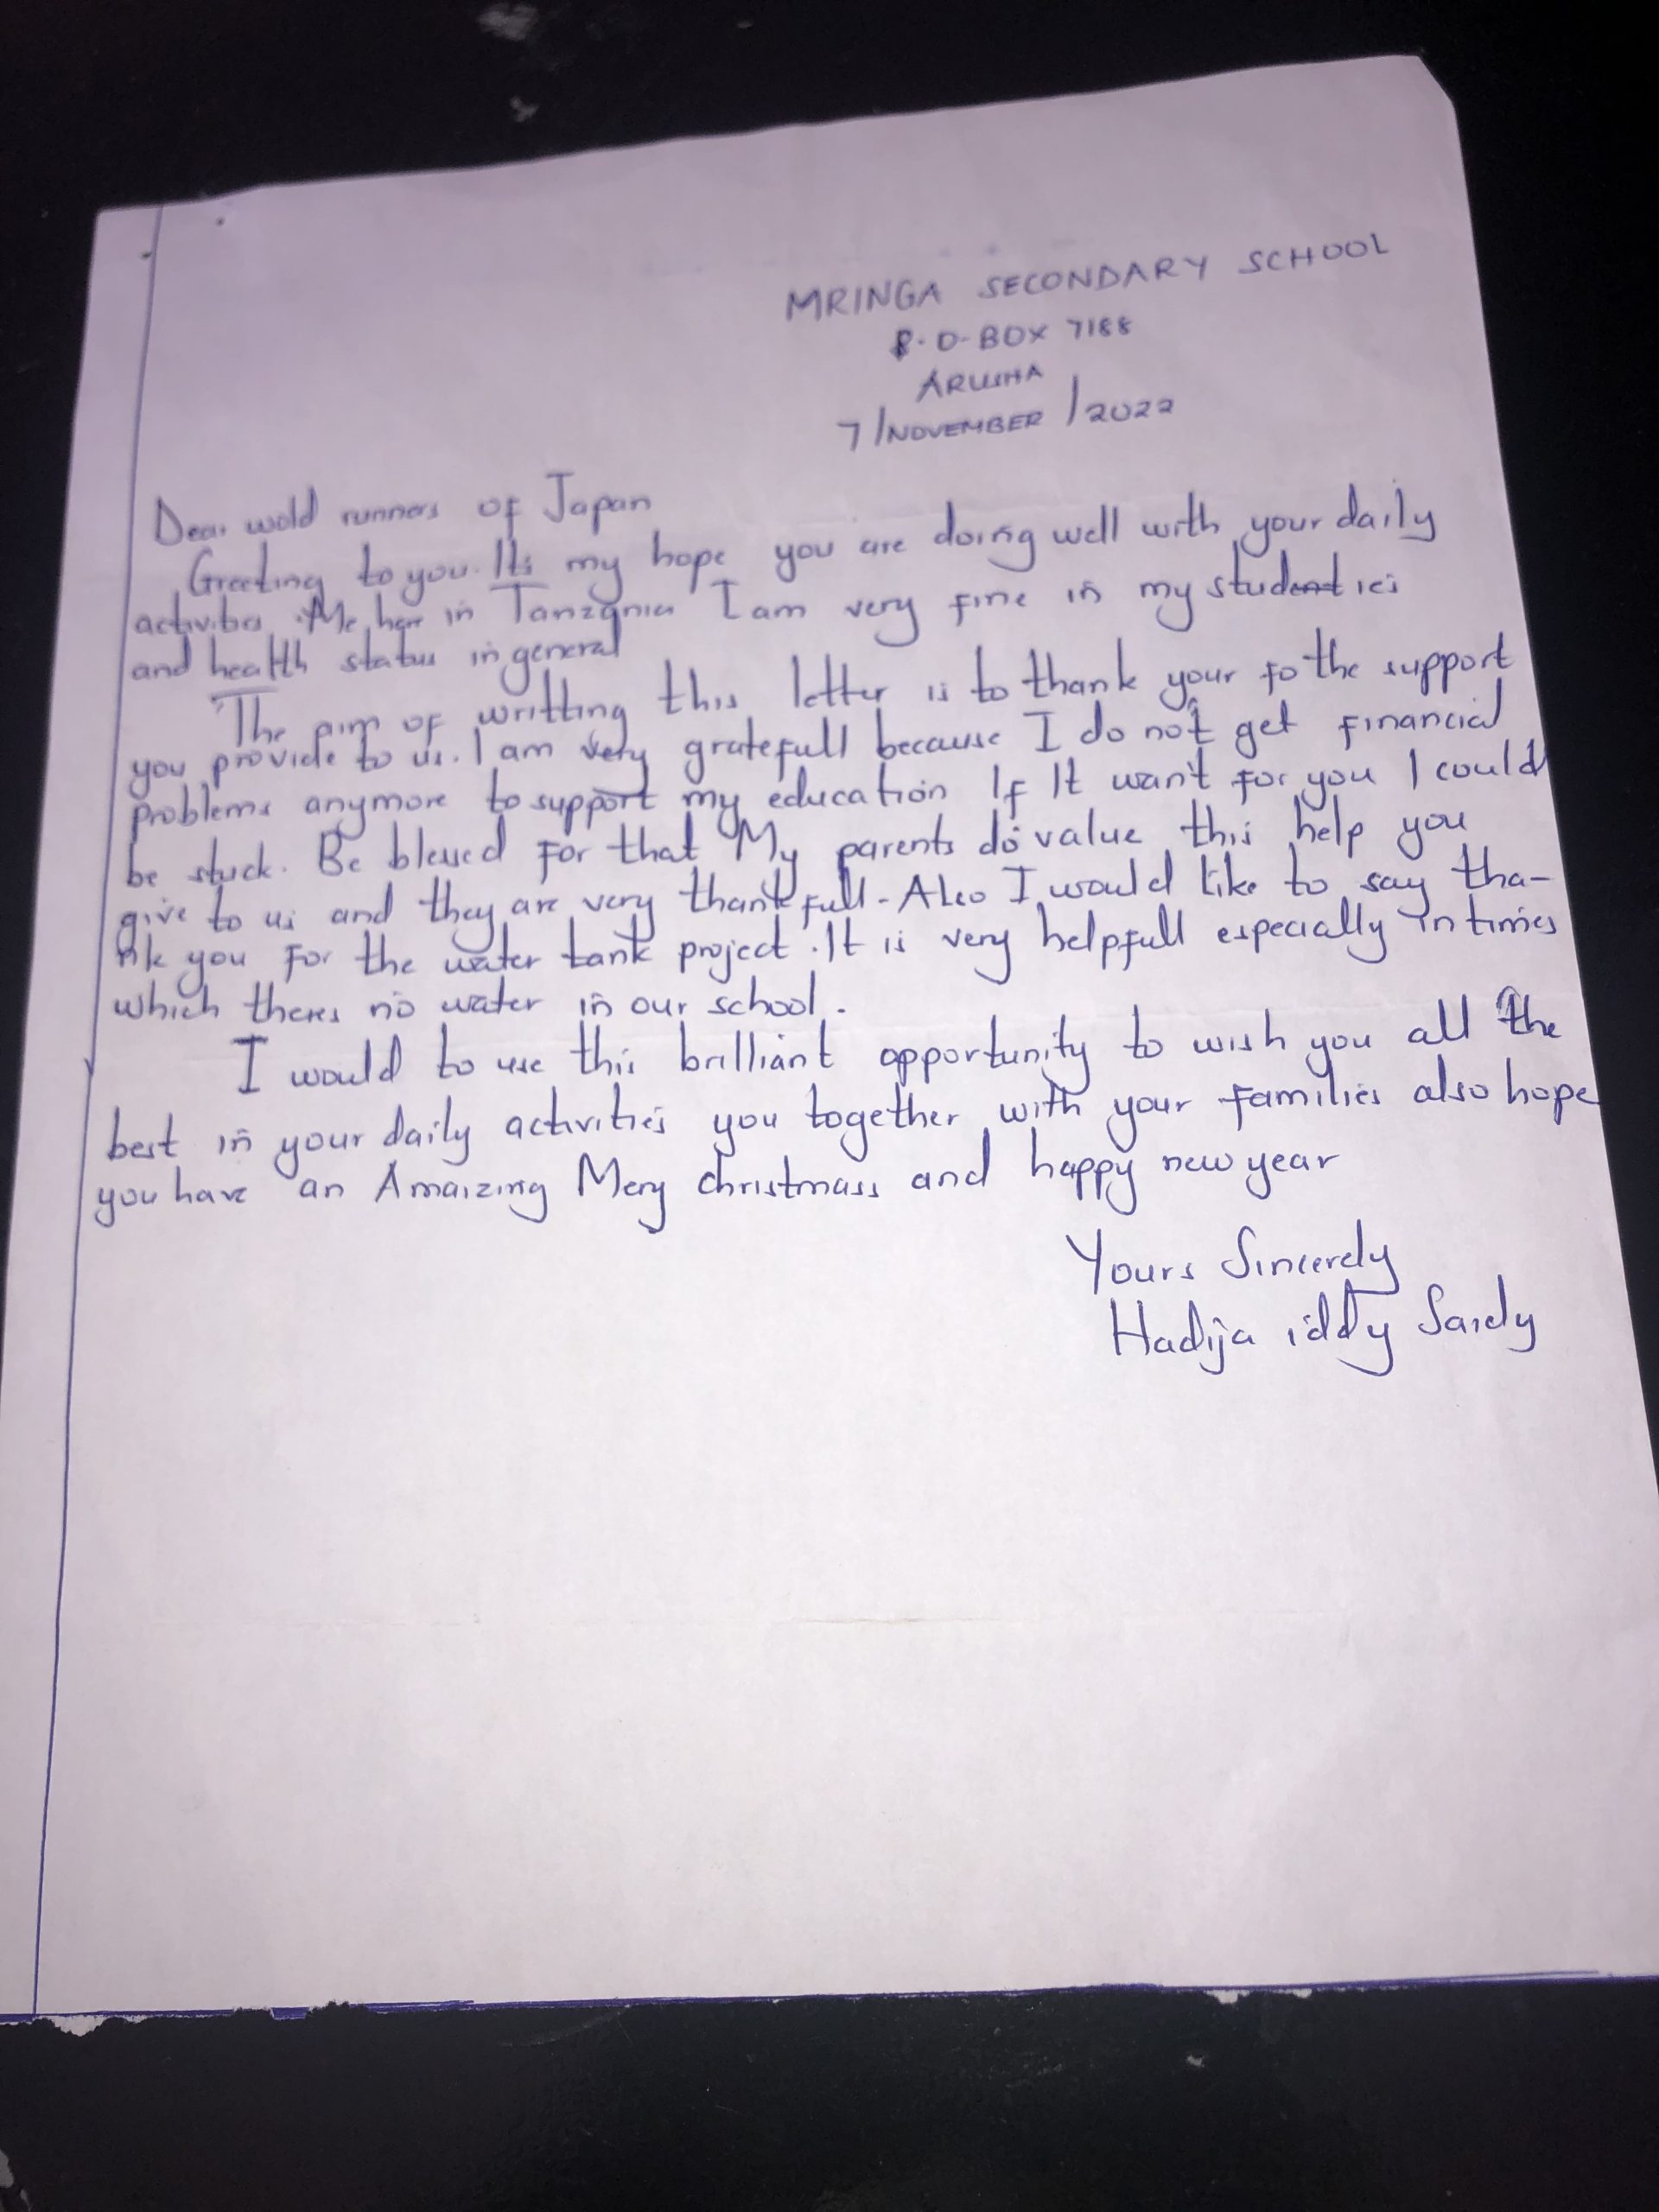 MRINGA SECONDARY SCHOOL
P.O-BOX 7188
ARUSHA
7/NOVEMBER/2022
Dear wold runners of Japan
Greeting to you. Its my hope you are doing well with your daily
activities. Me here in Tanzania I am very fine in my studies
and health status in general
The aim of writting this letter is to thank your fo the support
you provide to us. I am very gratefull because I do not get financial
problems anymore to support my education If It wan't for you I could
be stuck. Be blessed for that My parents do value this help you
give to us and they are very thankfull. Also I would like to say tha-
nk you for the water tank project. It is very helpfull especially in times
which theres no water in our school.
I would to use this brilliant opportunity to wish you all the
best in your daily activities you together with your families also hope
you have an Amaizing Mery christmass and happy new year
Yours Sincerely
Hadija iddy Saidy